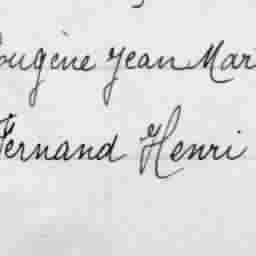 Eugène Jean Mar
Fernand Henri